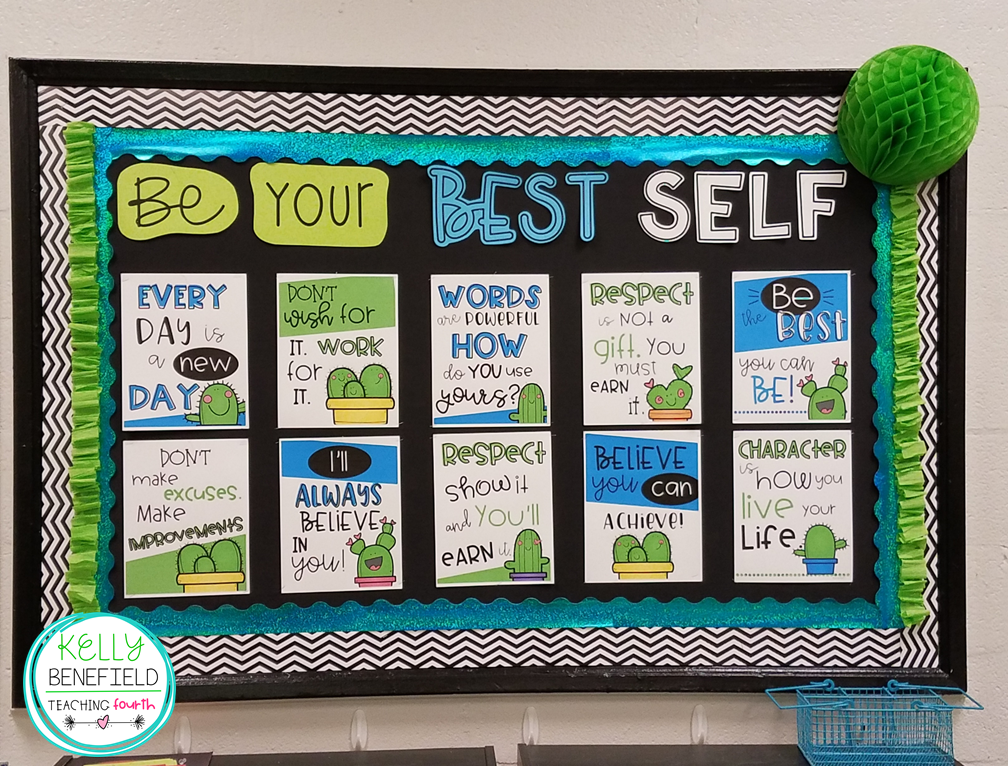 Be YOUR BEST SELF
EVERY
DAY is
a new
DAY
DON'T
wish for
IT. WORK
for
IT.
WORDS
are POWERFUL
HOW
do YOU use
yours?
RESPECT
is NOT a
gift. YOU
must
EARN
it.
Be
the BEST
you can
BE!
DON'T
make
excuses.
Make
IMPROVEMENTS
I'll
ALWAYS
BELIEVE
IN
you!
RESPECT
show it
and YOU'll
EARN it.
BELIEVE
you can
ACHIEVE!
CHARACTER
is how you
live your
Life
KELLY
BENEFIELD
TEACHING fourth